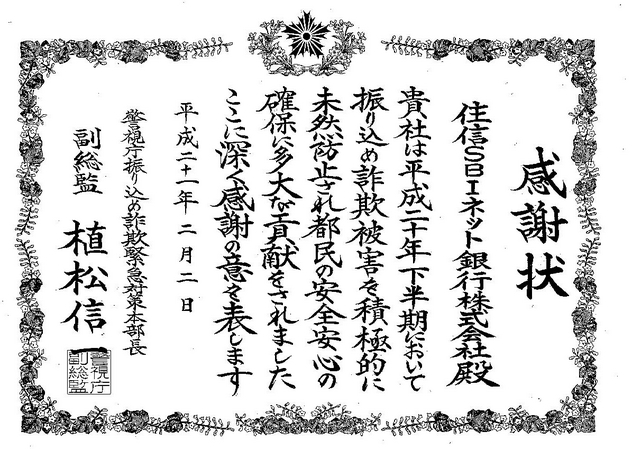 感謝状
住信SBIネット銀行株式会社殿
貴社は平成二十年下半期において
振り込め詐欺被害を積極的に
未然に防止され都民の安全安心の
確保に多大な貢献をされました
ここに深く感謝の意を表します
平成二十一年二月二日
警視庁振り込め詐欺緊急対策本部長
副総監 植松信一
警視庁
副総監